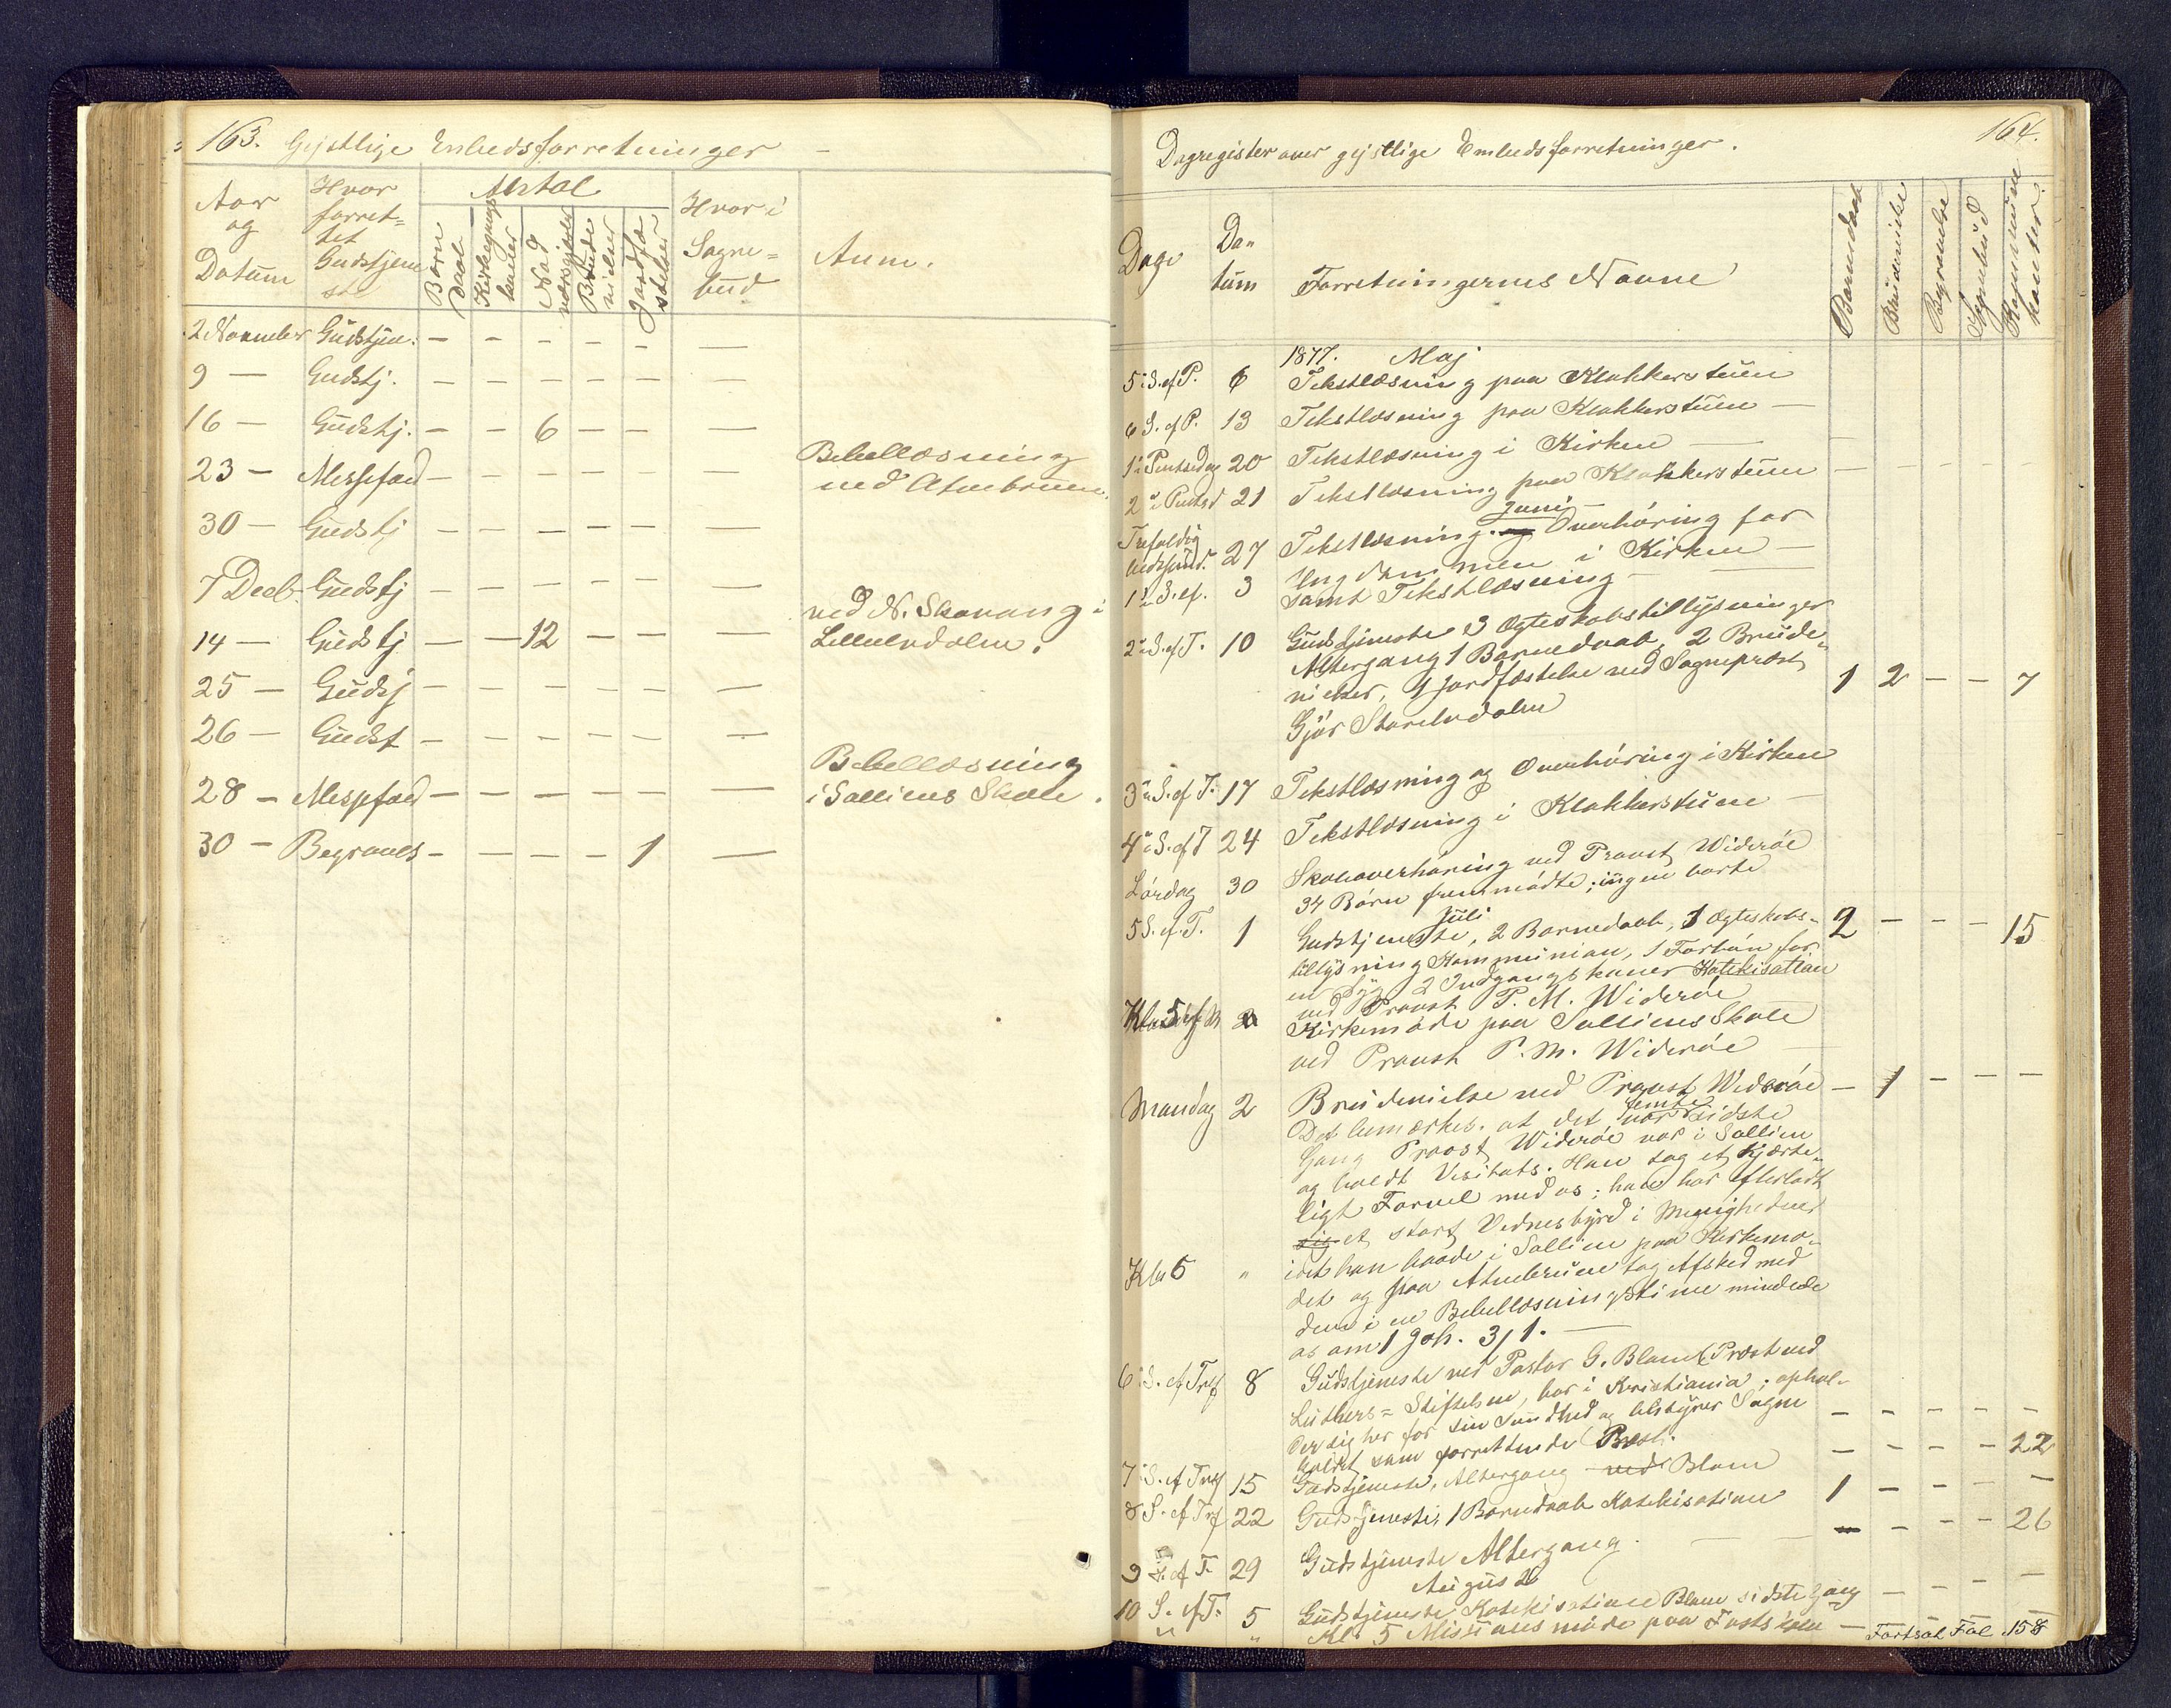 163. Gejstlige Embedsforretninger —
Aar og Datum
Hvor forret= tet Gudstjene ste
Antal
Barne Daab
Kirkegangs koner
Nad værsgjæster
Brude vielser
Jordfæ stelser
Hvor i Sogne= bud
Anm.
2 November Gudstjen. — — — — — —
9 — Gudstj. — — — — — —
16 — Gudstj. — — 6 — — —
23 — Messefald — — — — — — Bibellæsning
ved Atnebruen.
30 — Gudstj — — — — — —
7 Decb. Gudstj — — — — — —
ved N. Skavang i
14 — Gudstj — — 12 — — — Lilleelvdalen.
25 — Gudsj — — — — — —
26 — Gudst — — — — — —
Bibellæsning
28 — Messefald — — — — — — i Solliens Skole.
30 — Begravels — — — — 1 —
Dagregister over gejstlige Embedsforretninger. 164.
Dage
Da- tum
Forretningernes Navne
Barnedaab
Brudevielse
Begravelse
Sognebud
Kommuni kanter.
1877. Maj
5 S. ef P. 6 Tekstlæsning paa Klokkerstuen
6 S. ef P. 13 Tekstlæsning paa Klokkerstuen —
1 Pintsedag 20 Tekstlæsning i Kirken —
2 Pintsd 21 Tekstlæsning paa Klokkerstuen — — — — —
Juni
Trefoldig
hedssund. 27 Tekstlæsning. og Overhøring for
Ungdommen i Kirken —
1 S. ef. 3 samt Tekstlæsning —
2 S. ef T. 10 Gudstjeneste 3 Ægteskabstillysninger
Altergang 1 Barnedaab, 2 Brude-
vielser, 1 Jordfæstelse ved Sognepræst 1 2 — — 7
Gjør Storelvdalen
3 S. ef T. 17 Tekstlæsning og Overhøring i Kirken
4 S. ef T 24 Tekstlæsning i Klokkerstuen —
Lørdag 30 Skoleoverhøring ved Provst Widerøe
34 Børn fremmødte; ingen borte
Juli
5 S. ef. T. 1 Gudstjeneste, 2 Barnedaab, 1 Ægteskabs- 2 — — — 15
tillysning Kommunion, 1 Forbøn for
en Syg 2 Indgangskoner Katekisation
ved Provst P. M. Widerøe
Kirkemøde paa Solliens Skole
ved Provst P. M. Widerøe —
Mandag 2 Brudevielse ved Provst Widerøe — 1 — — —
Det bemærkes. at det var femte sidste
Gang Provst Widerøe var i Sollien
og holdt Visitats. Han tog et hjærte-
ligt Farvel med os; han har efterladt
sig et stort Vidnesbyrd i Menigheden
Kl 5 " idet han baade i Sollien paa Kirkemø-
det og paa Atnebruen tog Afsked med
dem i en Bibellæsningstime mindede
os om 1 Joh. 3, 1. —
6 S. ef Tref 8 Gudstjeneste ved Pastor G. Blom (Præst ved
Luthers= Stiftelsen, bor i Kristiania; ophol-
der sig her for sin Sundhed og bestyrer Sogne
kaldet som forrettende Præst. — — — — —
7 S. ef Tref 15 Gudstjeneste, Altergang ved Blom — — — — 22
8 S. ef Tref 22 Gudstjeneste, 1 Barnedaab Katekisation 1 — — — —
9 S. ef T. 29 Gudstjeneste Altergang. — — — — — 26
August
10 S. ef T. 5 Gudstjeneste Katekisation Blom sidste Gang — — — — —
" " Kl. 5 Missionsmøde paa — Fortsat Fol 158